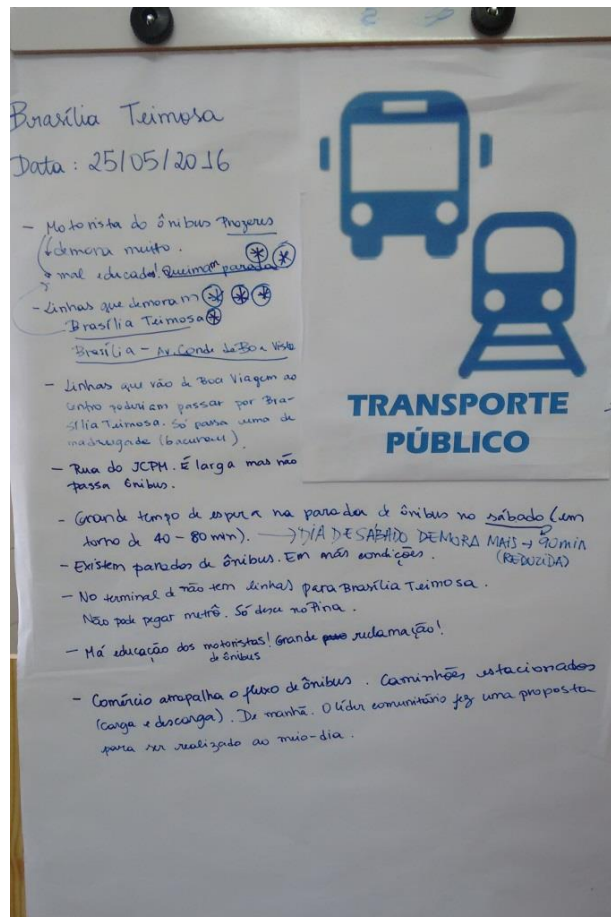 Brasília Teimosa
Data: 25/05/2016
- Motorista do ônibus
demora muito.
mal educado! Queimam parada
- Linhas que demoram
Brasília Teimosa
Brasília - Av. Conde da Boa Vista
- Linhas que vão de Boa Viagem ao
centro poderiam passar por Bra-
sília Teimosa. Só passa uma de
madrugada (bacurau).
- Rua do JCPM. É larga mas não
passa ônibus.
- Grande tempo de espera na parada de ônibus no sábado (em
torno de 40 - 80 min). → DIA DE SÁBADO DEMORA MAIS → 90 min
(REDUZIDA)
- Existem parados de ônibus. Em más condições.
- No terminal não tem linhas para Brasília Teimosa.
Não pode pegar metrô. Só desce no Pina.
- Má educação dos motoristas! Grande reclamação!
de ônibus
- Comércio atrapalha o fluxo de ônibus. Caminhões estacionados
(carga e descarga). De manhã. O líder comunitário fez uma proposta
para ser realizado ao meio-dia.
TRANSPORTE
PÚBLICO